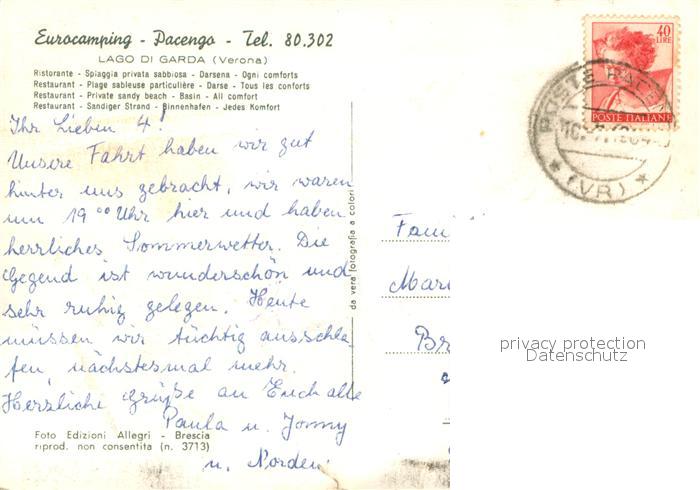 Eurocamping - Pacengo - Tel. 80.302
LAGO DI GARDA (Verona)
Ristorante - Spiaggia privata sabbiosa - Darsena - Ogni comforts
Restaurant - Plage sableuse particulière - Darse - Tous les conforts
Restaurant - Private sandy beach - Basin - All comfort
Restaurant - Sandiger Strand - Binnenhafen - Jedes Komfort
Ihr Lieben 4!
Unsere Fahrt haben wir gut
hinter uns gebracht, wir waren
um 19⁰⁰ Uhr hier und haben
herrliches Sommerwetter. Die
Gegend ist wunderschön und
sehr ruhig gelegen. Heute
müssen wir tüchtig ausschla-
fen, nächstesmal mehr.
Herzliche Grüße an Euch alle
Paula u. Jonny
u. Norden
Foto Edizioni Allegri - Brescia
riprod. non consentita (n. 3713)
da vera fotografia a colori
40
LIRE
POSTE ITALIANE
POSTE PACEN
(VR)
Fami
Mari
Br
privacy protection
Datenschutz